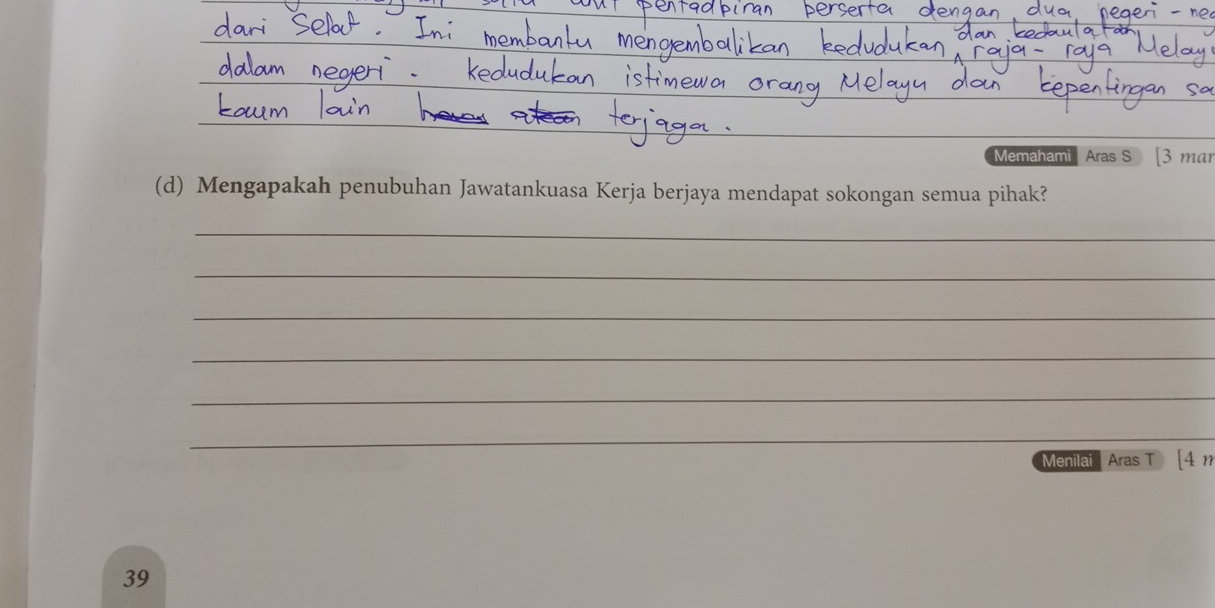 pentadbiran berserta dengan dua negeri - neg
dari Selat. Ini membantu mengembalikan kedudukan dan kedaulatan raja - raja Melayu
dalam negeri. kedudukan istimewa orang Melayu dan kepentingan sa
kaum lain terjaga.
Memahami Aras S [3 mar
(d) Mengapakah penubuhan Jawatankuasa Kerja berjaya mendapat sokongan semua pihak?
Menilai Aras T [4 m
39